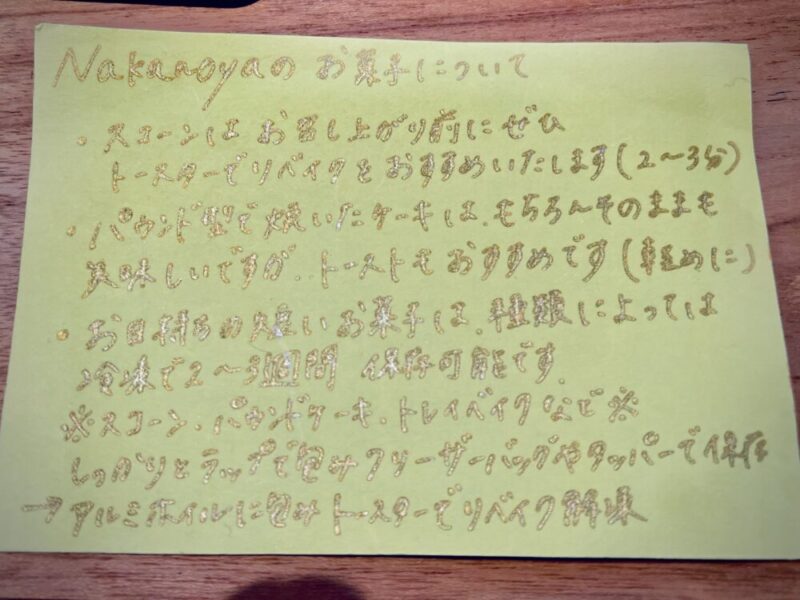 Nakanoyaのお菓子について
・スコーンはお召し上がり前にぜひ
トースターでリベイクをおすすめいたします(2〜3分)
・パウンド型で焼いたケーキは、もちろんそのままも
美味しいですが、トーストもおすすめです(軽めに)
・お日持ちの短いお菓子は、種類によっては
冷凍で2〜3週間 保存可能です。
※スコーン、パウンドケーキ、トレイベイクなど※
しっかりとラップで包みフリーザーバッグやタッパーで保存
→アルミホイルに包みトースターでリベイク解凍